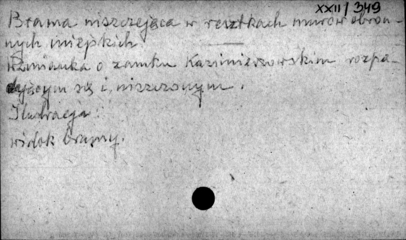 XXII/349
Brama niszczejąca w resztkach murów obron-
nych miejskich
Wzmianka o zamku Kazimierzowskim rozpa-
dającym się i niszczonym.
Ilustracja:
widok bramy.